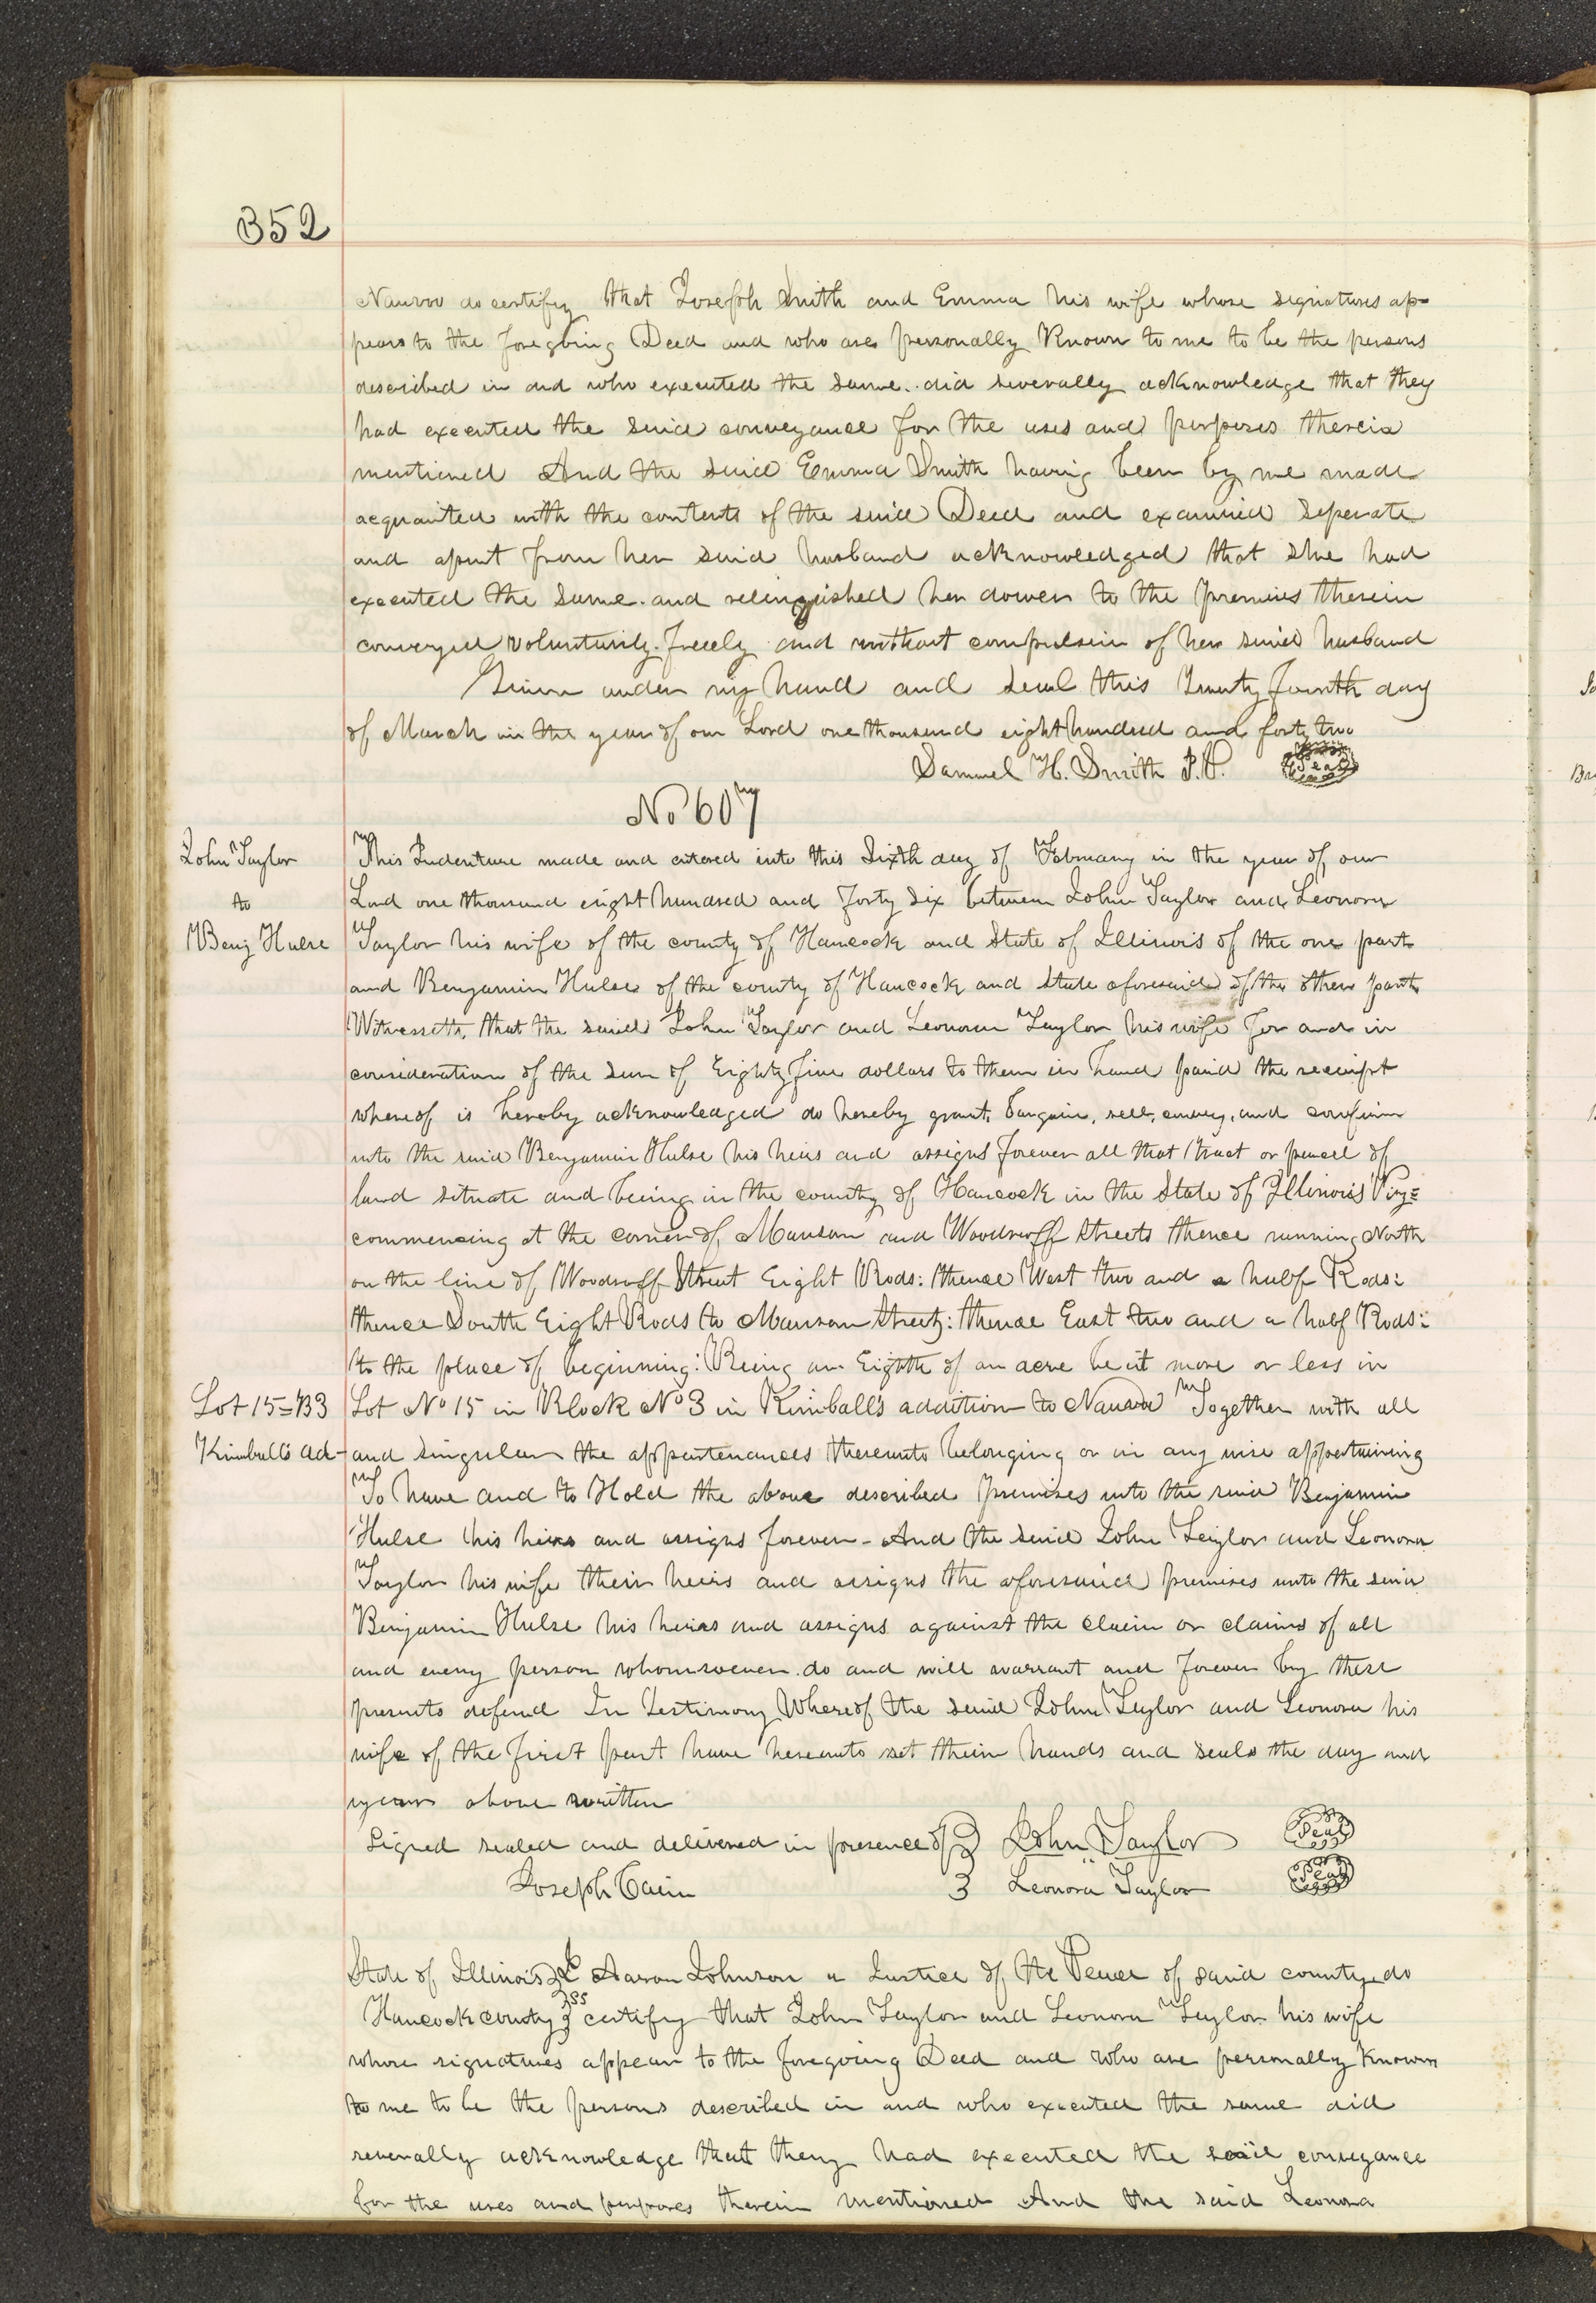 352
Nauvoo do certify that Joseph Smith and Emma his wife whose signatures ap=
pears to the foregoing Deed and who are personally Known to me to be the persons
described in and who executed the same. did severally acknowledge that they
had executed the said conveyance for the uses and purposes therein
mentioned And the said Emma Smith having been by me made
acquainted with the contents of the said Deed and examined seperate
and apart from her said husband acknowledged that she had
executed the same. and relinquished her dower to the premises therein
conveyed voluntarily. freely and without compulsion of her said husband
Given under my hand and seal this Twenty fourth day
of March in the year of our Lord one thousand eight hundred and forty two
Samuel H. Smith J.P. Seal
No 607
John Taylor
to
Benj Hulse
This Indenture made and entered into this Sixth day of February in the year of our
Lord one thousand eight hundred and forty six between John Taylor and Leonora
Taylor his wife of the county of Hancock and State of Illinois of the one part
and Benjamin Hulse of the county of Hancock and State aforesaid of the other part
Witnesseth, that the said John Taylor and Leonora Taylor his wife for and in
consideration of the sum of Eighty five dollars to them in hand paid the receipt
whereof is hereby acknowledged do hereby grant, bargain, sell, convey, and confirm
unto the said Benjamin Hulse his heirs and assigns forever all that tract or parcel of
land situate and being in the county of Hancock in the State of Illinois Viz=
commencing at the corner of Manson and Woodruff Streets thence running North
on the line of Woodruff Street Eight Rods: thence West two and a half Rods:
thence South Eight Rods to Manson Street: thence East two and a half Rods:
to the place of beginning: Being an Eighth of an acre be it more or less in
Lot 15=B3
Kimballs ad-
Lot No 15 in Block No 3 in Kimball's addition to Nauvoo Together with all
and singular the appertenances thereunto belonging or in any wise appertaining
To have and to Hold the above described premises unto the said Benjamin
Hulse his heirs and assigns forever - And the said John Taylor and Leonora
Taylor his wife their heirs and assigns the aforesaid premises unto the said
Benjamin Hulse his heirs and assigns against the claim or claims of all
and every person whomsoever. do and will warrant and forever by these
presents defend In Testimony Whereof the said John Taylor and Leonora his
wife of the first part have hereunto set their hands and seals the day and
year above written
Signed sealed and delivered in presence of } John Taylor Seal
Joseph Cain } Leonora Taylor Seal
State of Illinois } I Aaron Johnson a Justice of the Peace of said county do
Hancock county } ss certify that John Taylor and Leonora Taylor his wife
whose signatures appear to the foregoing Deed and who are personally Known
to me to be the persons described in and who executed the same did
severally acknowledge that they had executed the said conveyance
for the uses and purposes therein mentioned And the said Leonora